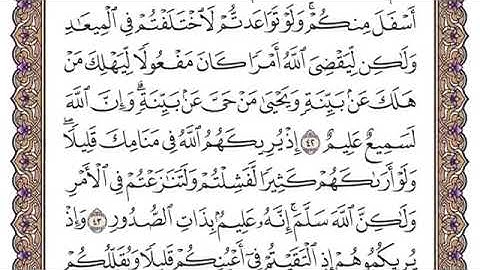 أَسْفَلَ مِنكُمْ ۚ وَلَوْ تَوَاعَدتُّمْ لَاخْتَلَفْتُمْ فِى الْمِيعَٰدِ
وَلَٰكِن لِّيَقْضِىَ اللَّهُ أَمْرًا كَانَ مَفْعُولًا لِّيَهْلِكَ مَنْ
هَلَكَ عَنۢ بَيِّنَةٍ وَيَحْيَىٰ مَنْ حَىَّ عَنۢ بَيِّنَةٍ ۗ وَإِنَّ اللَّهَ
لَسَمِيعٌ عَلِيمٌ ٤٢ إِذْ يُرِيكَهُمُ اللَّهُ فِى مَنَامِكَ قَلِيلًا ۖ
وَلَوْ أَرَىٰكَهُمْ كَثِيرًا لَّفَشِلْتُمْ وَلَتَنَٰزَعْتُمْ فِى الْأَمْرِ
وَلَٰكِنَّ اللَّهَ سَلَّمَ ۗ إِنَّهُۥ عَلِيمٌۢ بِذَاتِ الصُّدُورِ ٤٣ وَإِذْ
يُرِيكُمُوهُمْ إِذِ الْتَقَيْتُمْ فِىٓ أَعْيُنِكُمْ قَلِيلًا وَيُقَلِّلُكُمْ